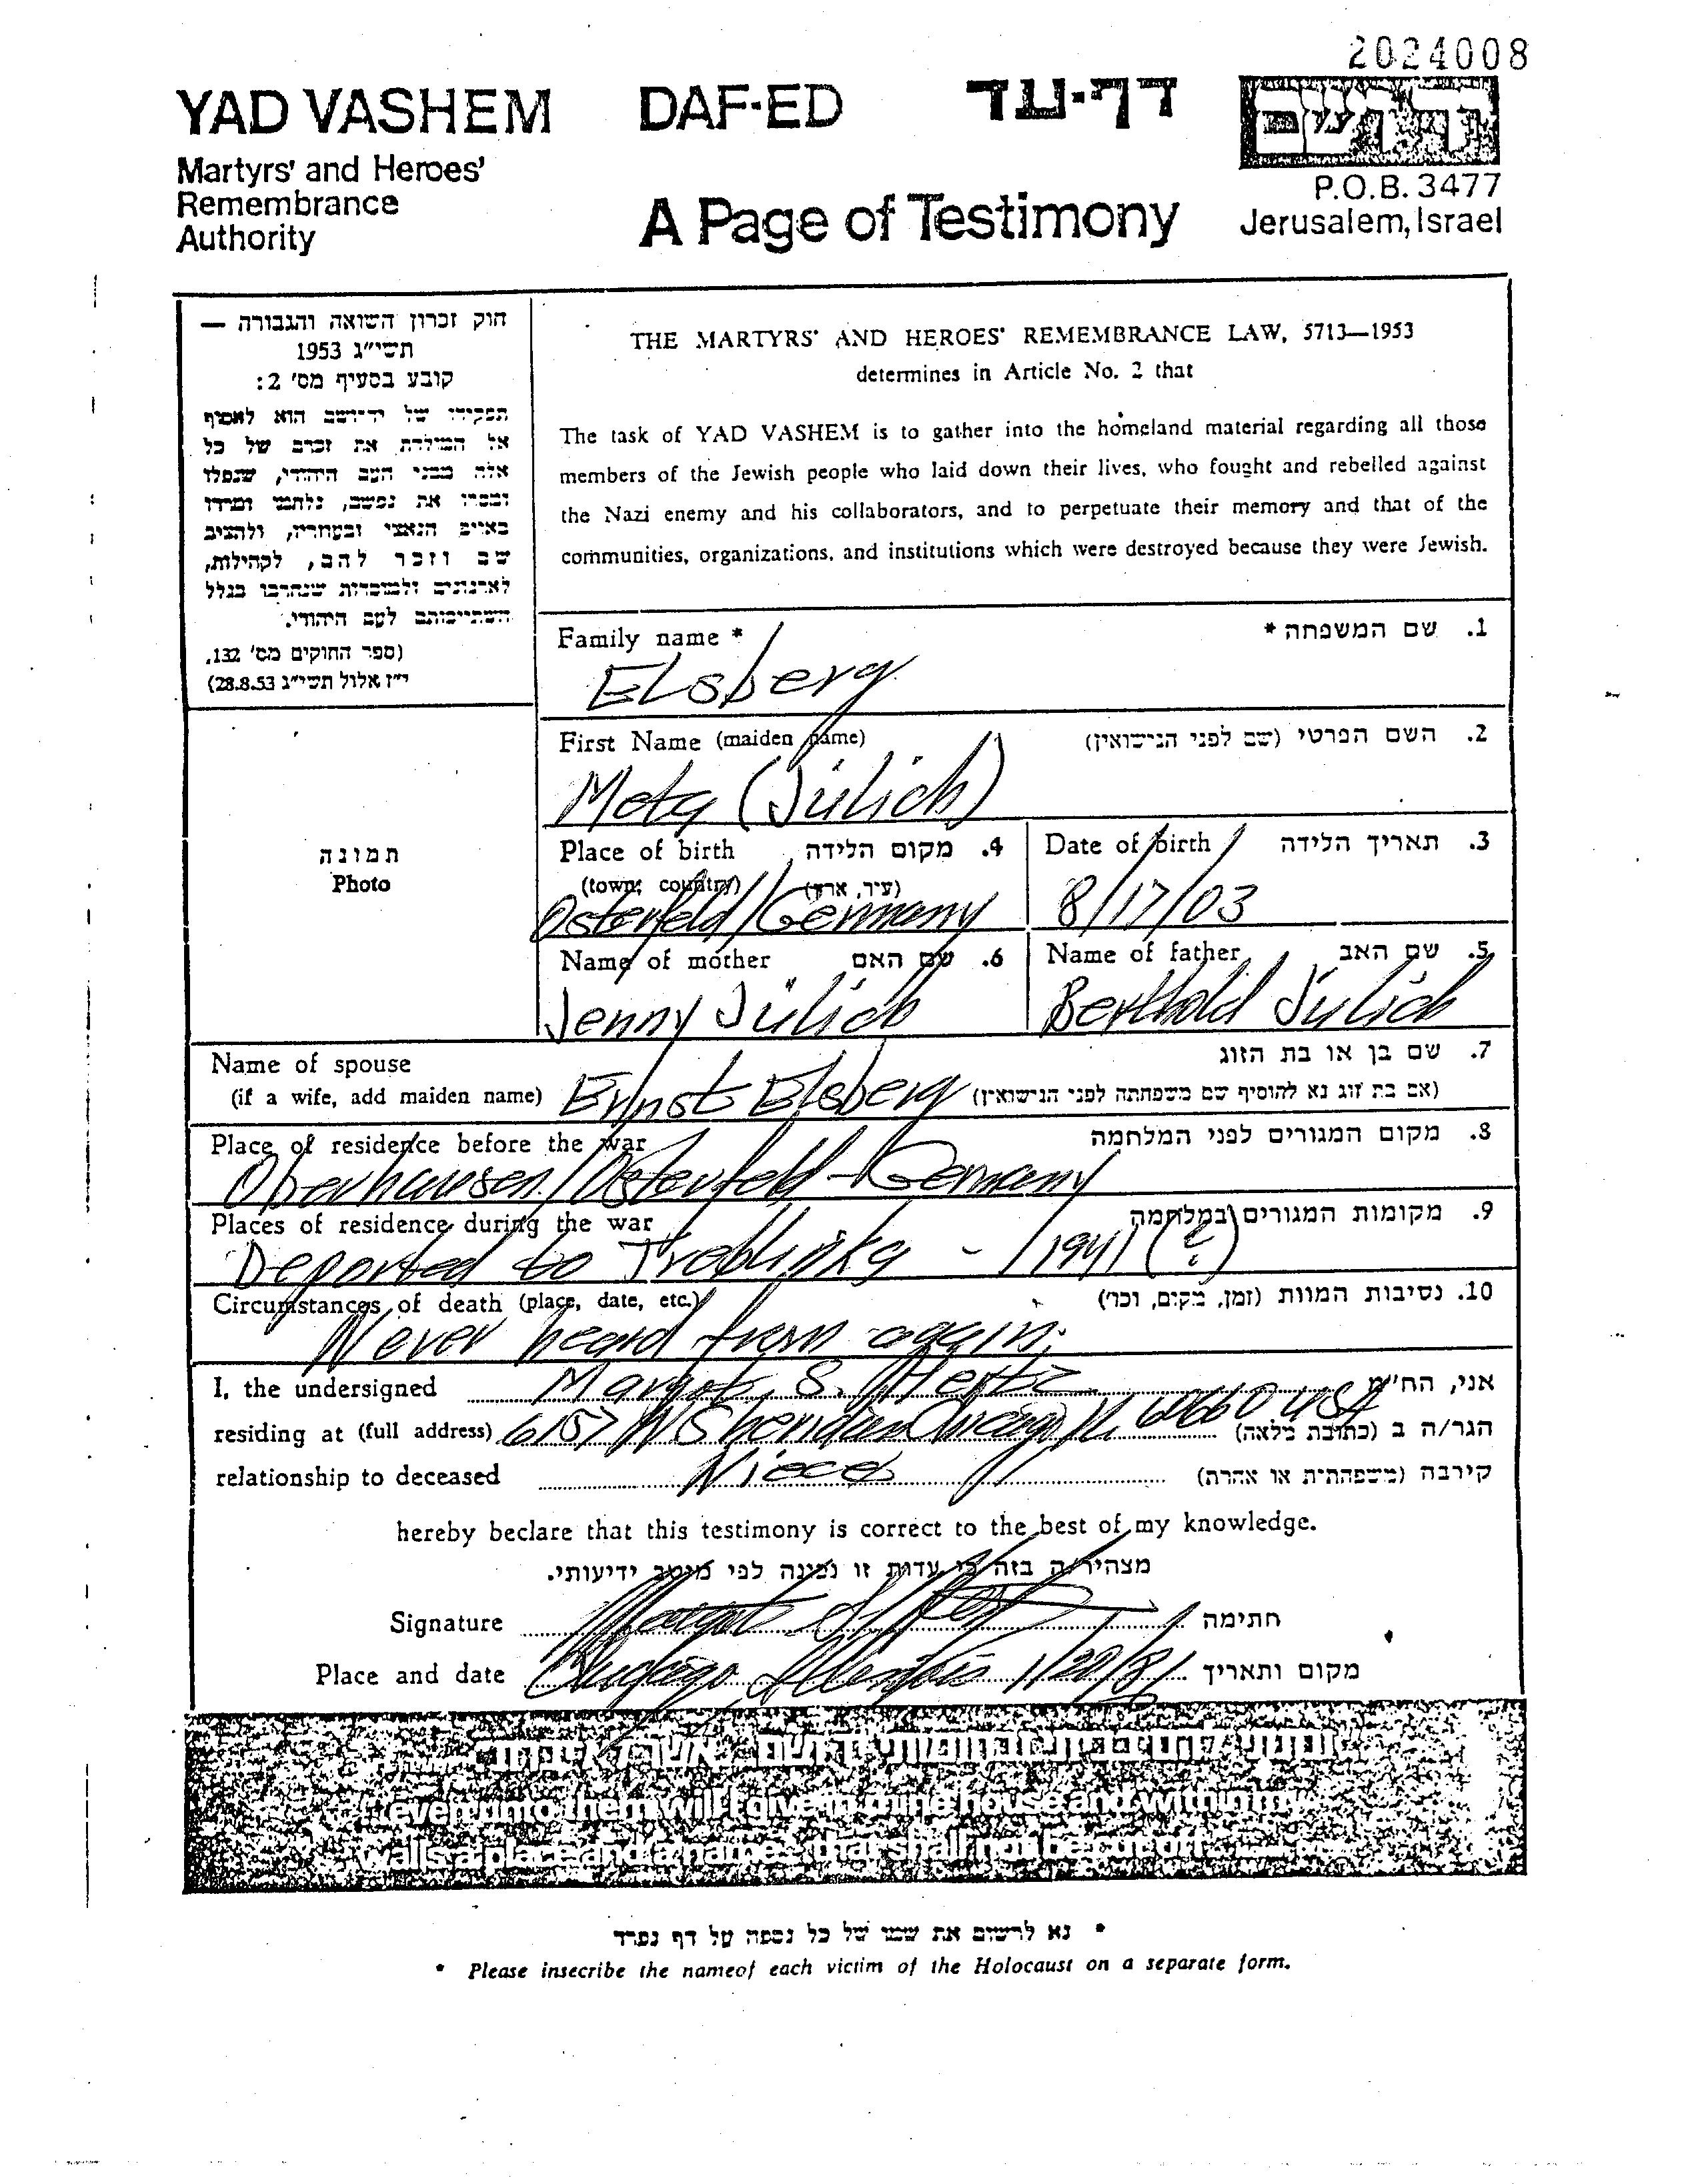 2024008
YAD VASHEM
Martyrs' and Heroes'
Remembrance
Authority
DAF-ED
דף-עד
A Page of Testimony
P.O.B. 3477
Jerusalem, Israel
חוק זכרון השואה והגבורה —
תשי"ג 1953
קובע בסעיף מס' 2:
תפקידו של יד-ושם הוא לאסוף
אל המולדת את זכרם של כל
אלה מבני העם היהודי, שנפלו
ומסרו את נפשם, נלחמו ומרדו
באויב הנאצי ובעוזריו, ולהציב
שם וזכר להם, לקהילות,
לארגונים ולמוסדות שנחרבו בגלל
השתייכותם לעם היהודי.
(ספר החוקים מס' 132,
י"ז אלול תשי"ג 28.8.53)
THE MARTYRS' AND HEROES' REMEMBRANCE LAW, 5713—1953
determines in Article No. 2 that
The task of YAD VASHEM is to gather into the homeland material regarding all those
members of the Jewish people who laid down their lives, who fought and rebelled against
the Nazi enemy and his collaborators, and to perpetuate their memory and that of the
communities, organizations, and institutions which were destroyed because they were Jewish.
Family name * 1. שם המשפחה *
Elsberg
First Name (maiden name) 2. השם הפרטי (שם לפני הנישואין)
Meta (Jülich)
תמונה
Photo
Place of birth 4. מקום הלידה
(town, country) (עיר, ארץ)
Osterfeld/Germany
Date of birth 3. תאריך הלידה
8/17/03
Name of mother 6. שם האם
Jenny Jülich
Name of father 5. שם האב
Berthold Jülich
Name of spouse 7. שם בן או בת הזוג
(if a wife, add maiden name) Ernst Elsberg (אם בת זוג נא להוסיף שם משפחתה לפני הנישואין)
Place of residence before the war 8. מקום המגורים לפני המלחמה
Oberhausen/Osterfeld-Germany
Places of residence during the war 9. מקומות המגורים במלחמה
Deported to Treblinka - 1941 (?)
Circumstances of death (place, date, etc.) 10. נסיבות המוות (זמן, מקום, וכו')
Never heard from again.
I, the undersigned Margot S. Hertz אני, הח"מ
residing at (full address) 6157 N Sheridan Chicago Il 60660 USA הגר/ה ב (כתובת מלאה)
relationship to deceased Niece קירבה (משפחתית או אחרת)
hereby beclare that this testimony is correct to the best of my knowledge.
מצהיר/ה בזה כי עדות זו נכונה לפי מיטב ידיעותי.
Signature Margot S. Hertz חתימה
Place and date Chicago, Illinois 1/20/81 מקום ותאריך
even unto them will I give in mine house and within my
walls a place and a name that shall not be cut off
* נא לרשום את שמו של כל נספה על דף נפרד
* Please insecribe the nameof each victim of the Holocaust on a separate form.